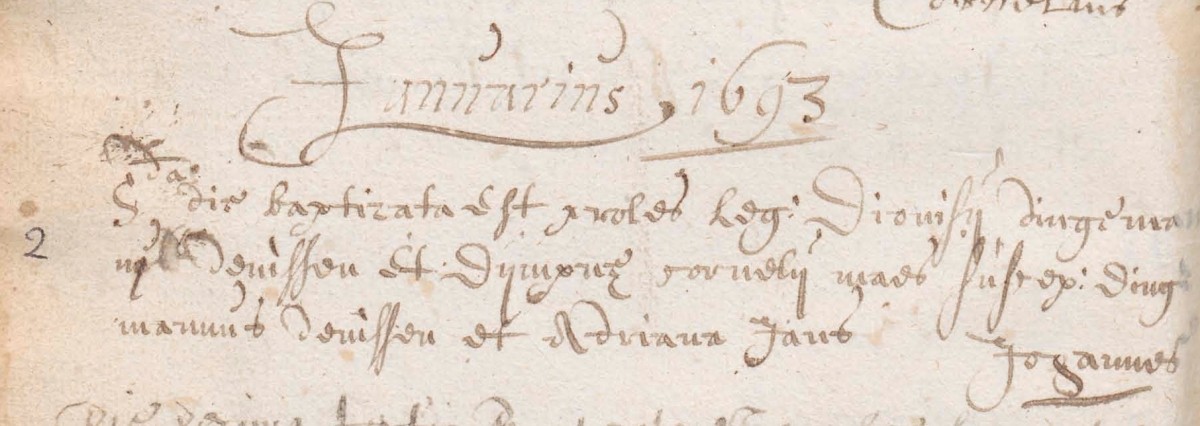 Cornelius
Januarius, 1693
2da die baptizata est proles leg: Dionisij dingema
nij denissen et Dijmpnę cornelij maes suscep: ding
mannus denissen et Adriana Jans
Johannes
2